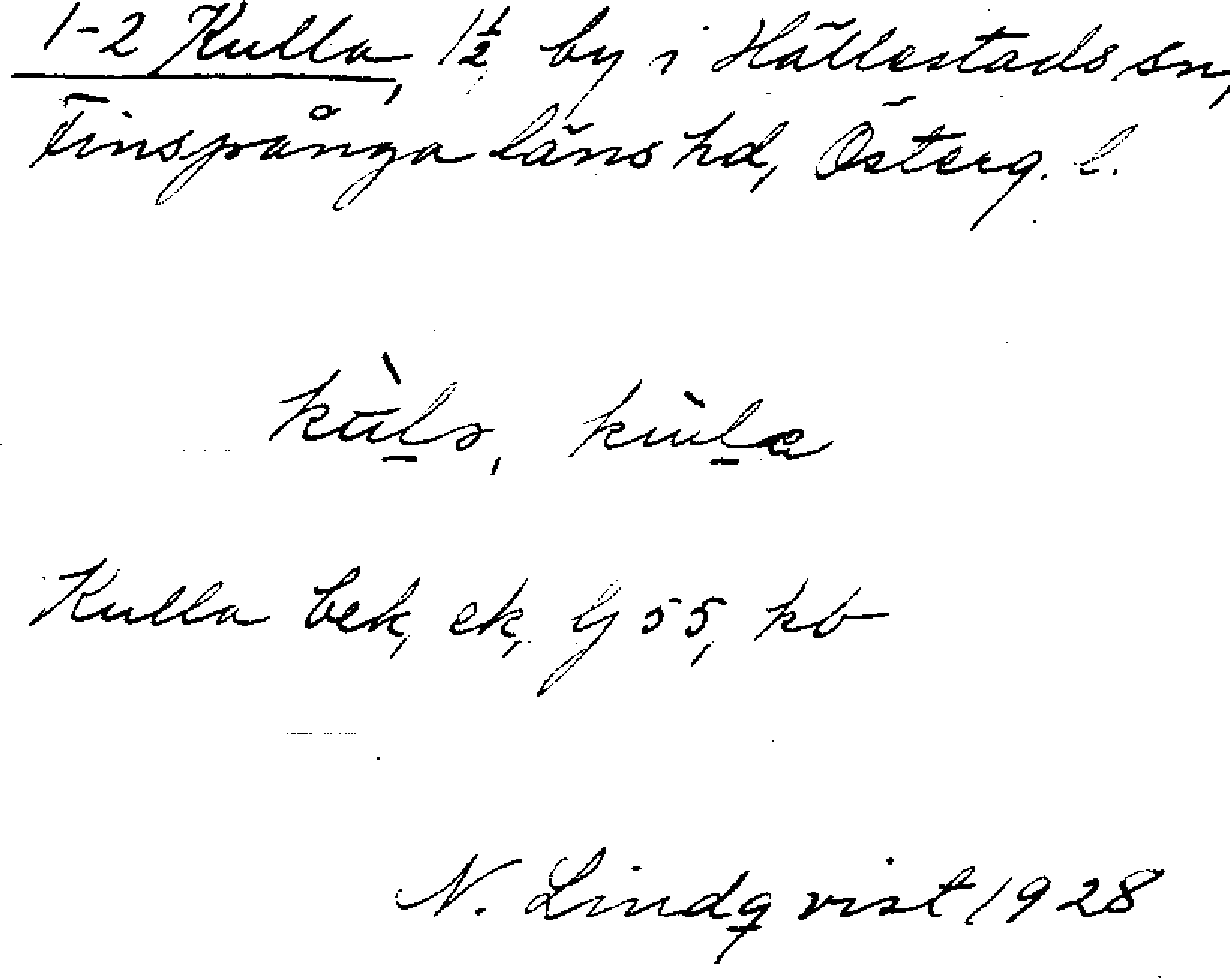 1-2 Kulla, 1½ by i Hällestads sn,
Finspånga läns hd, Österg. l.
Kulla bek, ek, Gj 55, kb
N. Lindqvist 1928